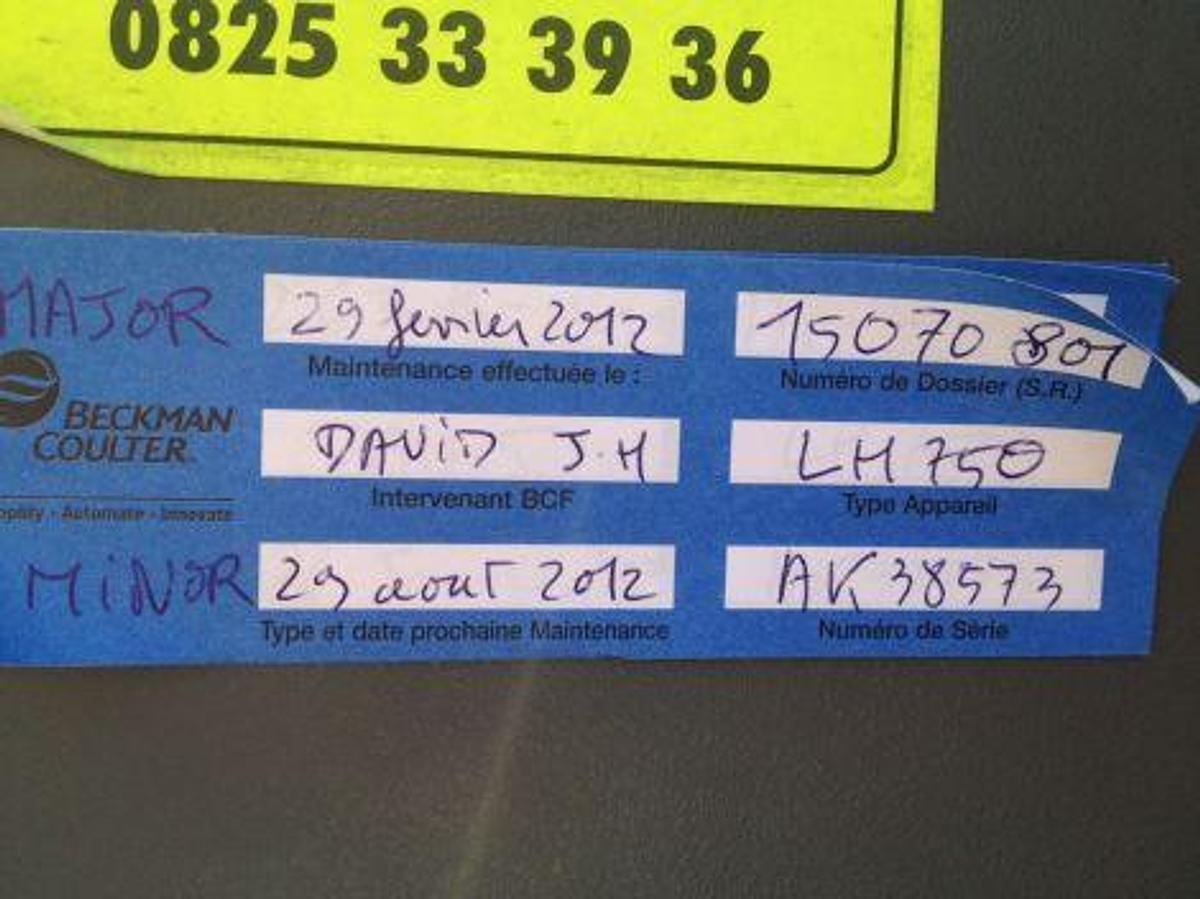 0825 33 39 36
MAJOR
29 fevrier 2012
15070 801
Maintenance effectuée le :
Numéro de Dossier (S.R.)
BECKMAN
COULTER
DAViD J.H
LH 750
Intervenant BCF
Type Appareil
- Automate - Innovate
MiNOR
29 aout 2012
AK 38573
Type et date prochaine Maintenance
Numéro de Série